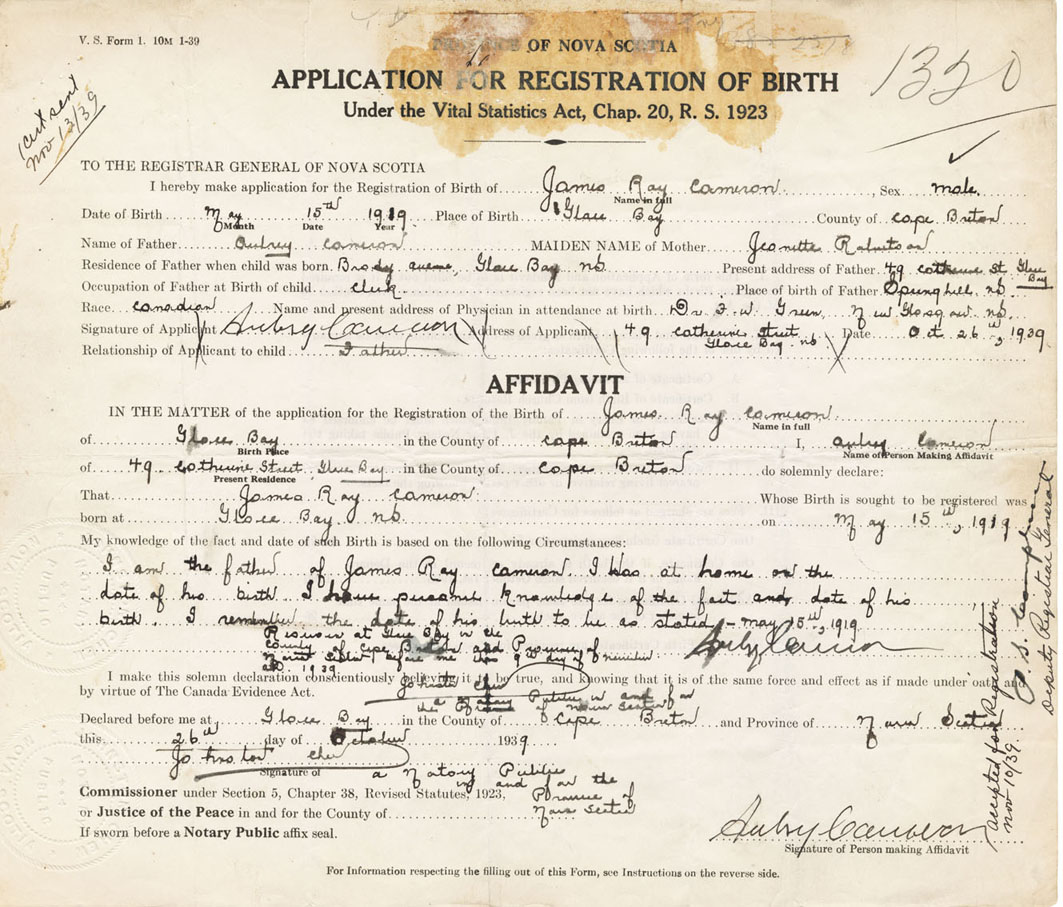 V. S. Form 1. 10M 1-39
OF NOVA SCOTIA
1320
APPLICATION FOR REGISTRATION OF BIRTH
Under the Vital Statistics Act, Chap. 20, R. S. 1923
1 cert sent
Nov 13/39
TO THE REGISTRAR GENERAL OF NOVA SCOTIA
I hereby make application for the Registration of Birth of James Ray Cameron, Sex male.
Name in full
Date of Birth May 15th 1919 Place of Birth Glace Bay County of Cape Breton
Month Date Year
Name of Father Aubrey Cameron MAIDEN NAME of Mother Jeanette
Residence of Father when child was born. Glace Bay NS. Present address of Father. 49 Catherine St Glace Bay
Occupation of Father at Birth of child. Clerk Place of birth of Father Springhill, NS.
Race. Canadian Name and present address of Physician in attendance at birth. Dr. F. W. Green, New Glasgow NS.
Signature of Applicant Aubry Cameron Address of Applicant 49 Catherine Street Date Oct 26th, 1939
Glace Bay NS.
Relationship of Applicant to child Father
AFFIDAVIT
IN THE MATTER of the application for the Registration of the Birth of James Ray Cameron
Name in full
of Glace Bay in the County of Cape Breton I, Aubry Cameron
Birth Place Name of Person Making Affidavit
of 49 Catherine Street, Glace Bay in the County of Cape Breton do solemnly declare:
Present Residence
That James Ray Cameron Whose Birth is sought to be registered was
born at Glace Bay NS on May 15th, 1919
My knowledge of the fact and date of such Birth is based on the following Circumstances:
I am the father of James Ray Cameron. I was at home on the
date of his birth I have personal knowledge of the fact and date of his
birth. I remember the date of his birth to be as stated - May 15th, 1919
at Glace Bay in the Aubry Cameron
County of Cape Breton and Province of
Nova Scotia before me this 9th day of November
A.D. 1939
I make this solemn declaration conscientiously believing it to be true, and knowing that it is of the same force and effect as if made under oath and
by virtue of The Canada Evidence Act.
a Notary Public in and for
the Province of Nova Scotia
Declared before me at Glace Bay in the County of Cape Breton and Province of Nova Scotia
this 26th day of October 1939
Signature of a Notary Public
in and for the
Commissioner under Section 5, Chapter 38, Revised Statutes, 1923, Province of
or Justice of the Peace in and for the County of Nova Scotia
If sworn before a Notary Public affix seal.
Aubry Cameron
Signature of Person making Affidavit
For Information respecting the filling out of this Form, see Instructions on the reverse side.
Accepted for Registration
Nov 10/39.
Deputy Registrar General